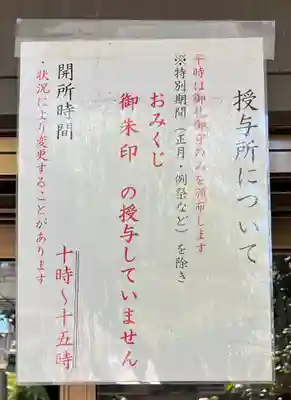 授与所について
平時は御札御守のみを頒布します
※特別期間（正月・例祭など）を除き
おみくじ
御朱印 の授与していません
開所時間
十時～十五時
・状況により変更することがあります